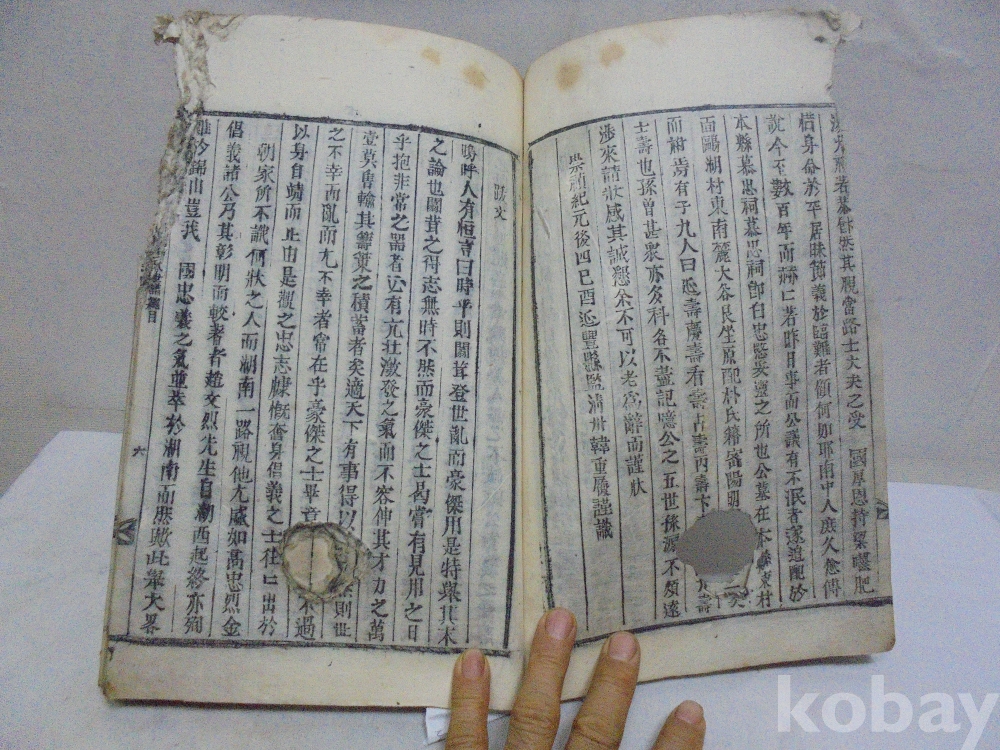 國厚恩持粱囓肥
惜身命於平居昧節義於臨難者顧何如耶南中人庶久愈傳
說今至數百年而赫々若昨日事而公議有不泯者遂追配於
本縣慕忠祠慕忠祠卽白忠愍妥靈之所也公墓在本縣東村
面鷗湖村東南麓大谷艮坐原配朴氏籍密陽
而祔焉有子九人曰延壽慶壽看壽占壽丙壽
士壽也孫曾甚衆亦多科各不盡記憶公之五世孫 不煩遠
涉來請狀感其誠懇余不可以老爲辭而謹狀
崇禎紀元後四己酉延豐縣監淸州韓重履謹識
跋文
嗚呼人有恒言曰時平則闒茸登世亂而豪傑用是特擧其末
之論也闒茸之得志無時不然而豪傑之士曷嘗有見用之日
乎抱非常之器者必有亢壯激發之氣而不求伸其才力之萬
壹莫售輸其籌策之積蓄者矣適天下有事得以 則世
之不幸而亂而尤不幸者常在乎豪傑之士畢竟 不過
以身自靖而止由是觀之忠志慷慨奮身倡義之士往々出於
朝家所不識何狀之人而湖南一路視他尤盛如高忠烈金
倡義諸公乃其彰明而較著者趙文烈先生自湖西起終亦殉
於錦山豈我 國忠義之氣並萃於湖南而然歟此擧大畧
六
kobay